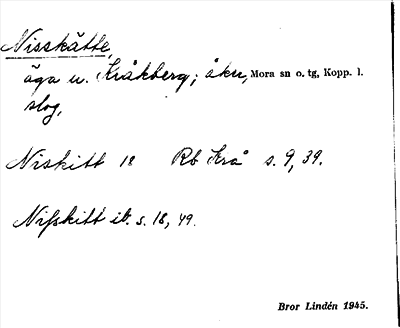 Nisskätte,
äga u. Kråkberg; åker, Mora sn o. tg, Kopp. l.
slog,
Niskitt 18 Rb Krå s. 9, 39.
Nisskitt ib. s. 18, 49.
Bror Lindén 1945.